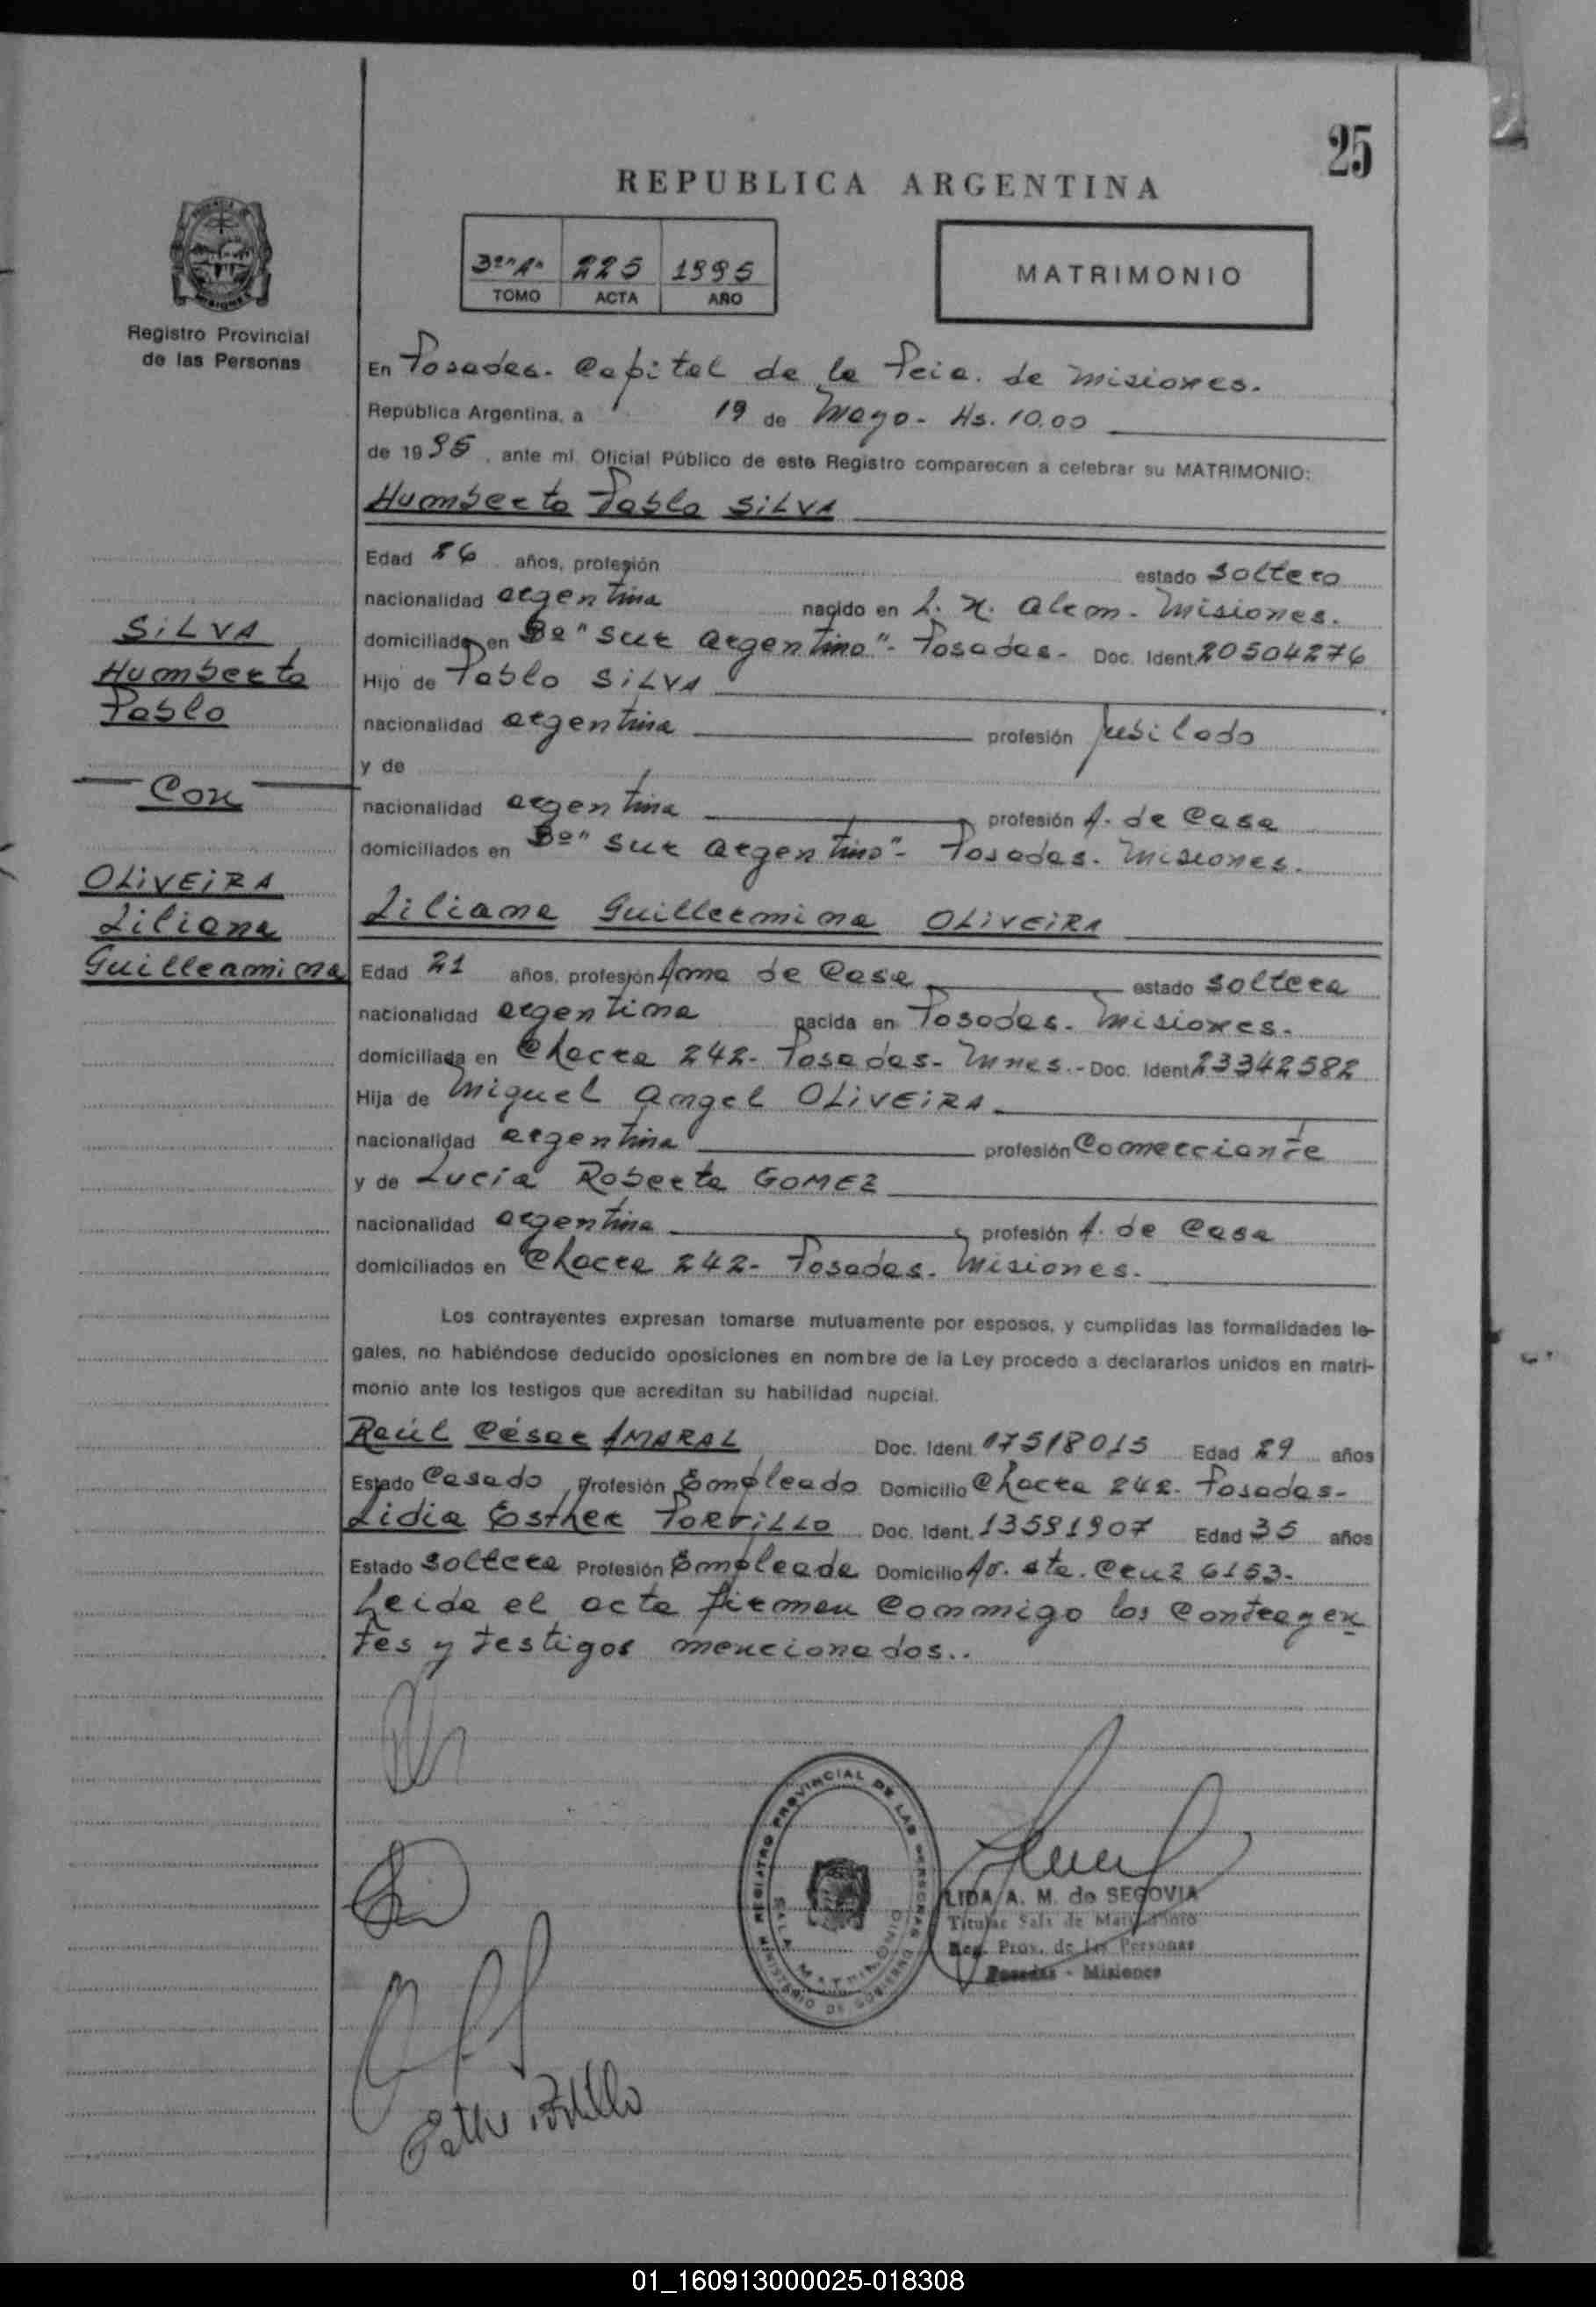 25
REPUBLICA ARGENTINA
3º "A" 225 1995
TOMO ACTA AÑO
MATRIMONIO
Registro Provincial
de las Personas
En Posadas. Capital de la Pcia. de Misiones.
República Argentina, a 19 de Mayo - Hs. 10.00
de 1995, ante mi Oficial Público de este Registro comparecen a celebrar su MATRIMONIO:
Humberto Pablo SILVA
Edad 26 años, profesión estado soltero
nacionalidad argentina nacido en L. N. Alem - Misiones.
domiciliado en Bº "Sur Argentino" - Posadas - Doc. Ident. 20504276
Hijo de Pablo SILVA
nacionalidad argentina profesión Jubilado
y de
nacionalidad argentina profesión A. de Casa
domiciliados en Bº "Sur Argentino" - Posadas. Misiones.
SILVA
Humberto
Pablo
Con
OLIVEIRA
Liliana
Guillermina
Liliana Guillermina OLIVEIRA
Edad 21 años, profesión Ama de Casa estado soltera
nacionalidad argentina nacida en Posadas. Misiones.
domiciliada en Chacra 242 - Posadas - Mnes. - Doc. Ident. 23342582
Hija de Miguel Angel OLIVEIRA
nacionalidad argentina profesión Comerciante
y de Lucía Roberta GOMEZ
nacionalidad argentina profesión A. de Casa
domiciliados en Chacra 242 - Posadas. Misiones.
Los contrayentes expresan tomarse mutuamente por esposos, y cumplidas las formalidades le-
gales, no habiéndose deducido oposiciones en nombre de la Ley procedo a declararlos unidos en matri-
monio ante los testigos que acreditan su habilidad nupcial.
Raúl César AMARAL Doc. Ident. 17518015 Edad 29 años
Estado Casado Profesión Empleado Domicilio Chacra 242. Posadas-
Lidia Esther PORTILLO Doc. Ident. 13591907 Edad 35 años
Estado soltera Profesión Empleada Domicilio Av. Sta. Cruz 6153.
Leida el acta firman conmigo los contrayen
tes y testigos mencionados..
REGISTRO PROVINCIAL DE LAS PERSONAS
MINISTERIO DE GOBIERNO
SALA MATRIMONIO
LIDA A. M. de SEGOVIA
Titular Sala de Matrimonio
Reg. Prov. de las Personas
Posadas - Misiones
Esther Portillo
01_160913000025-018308